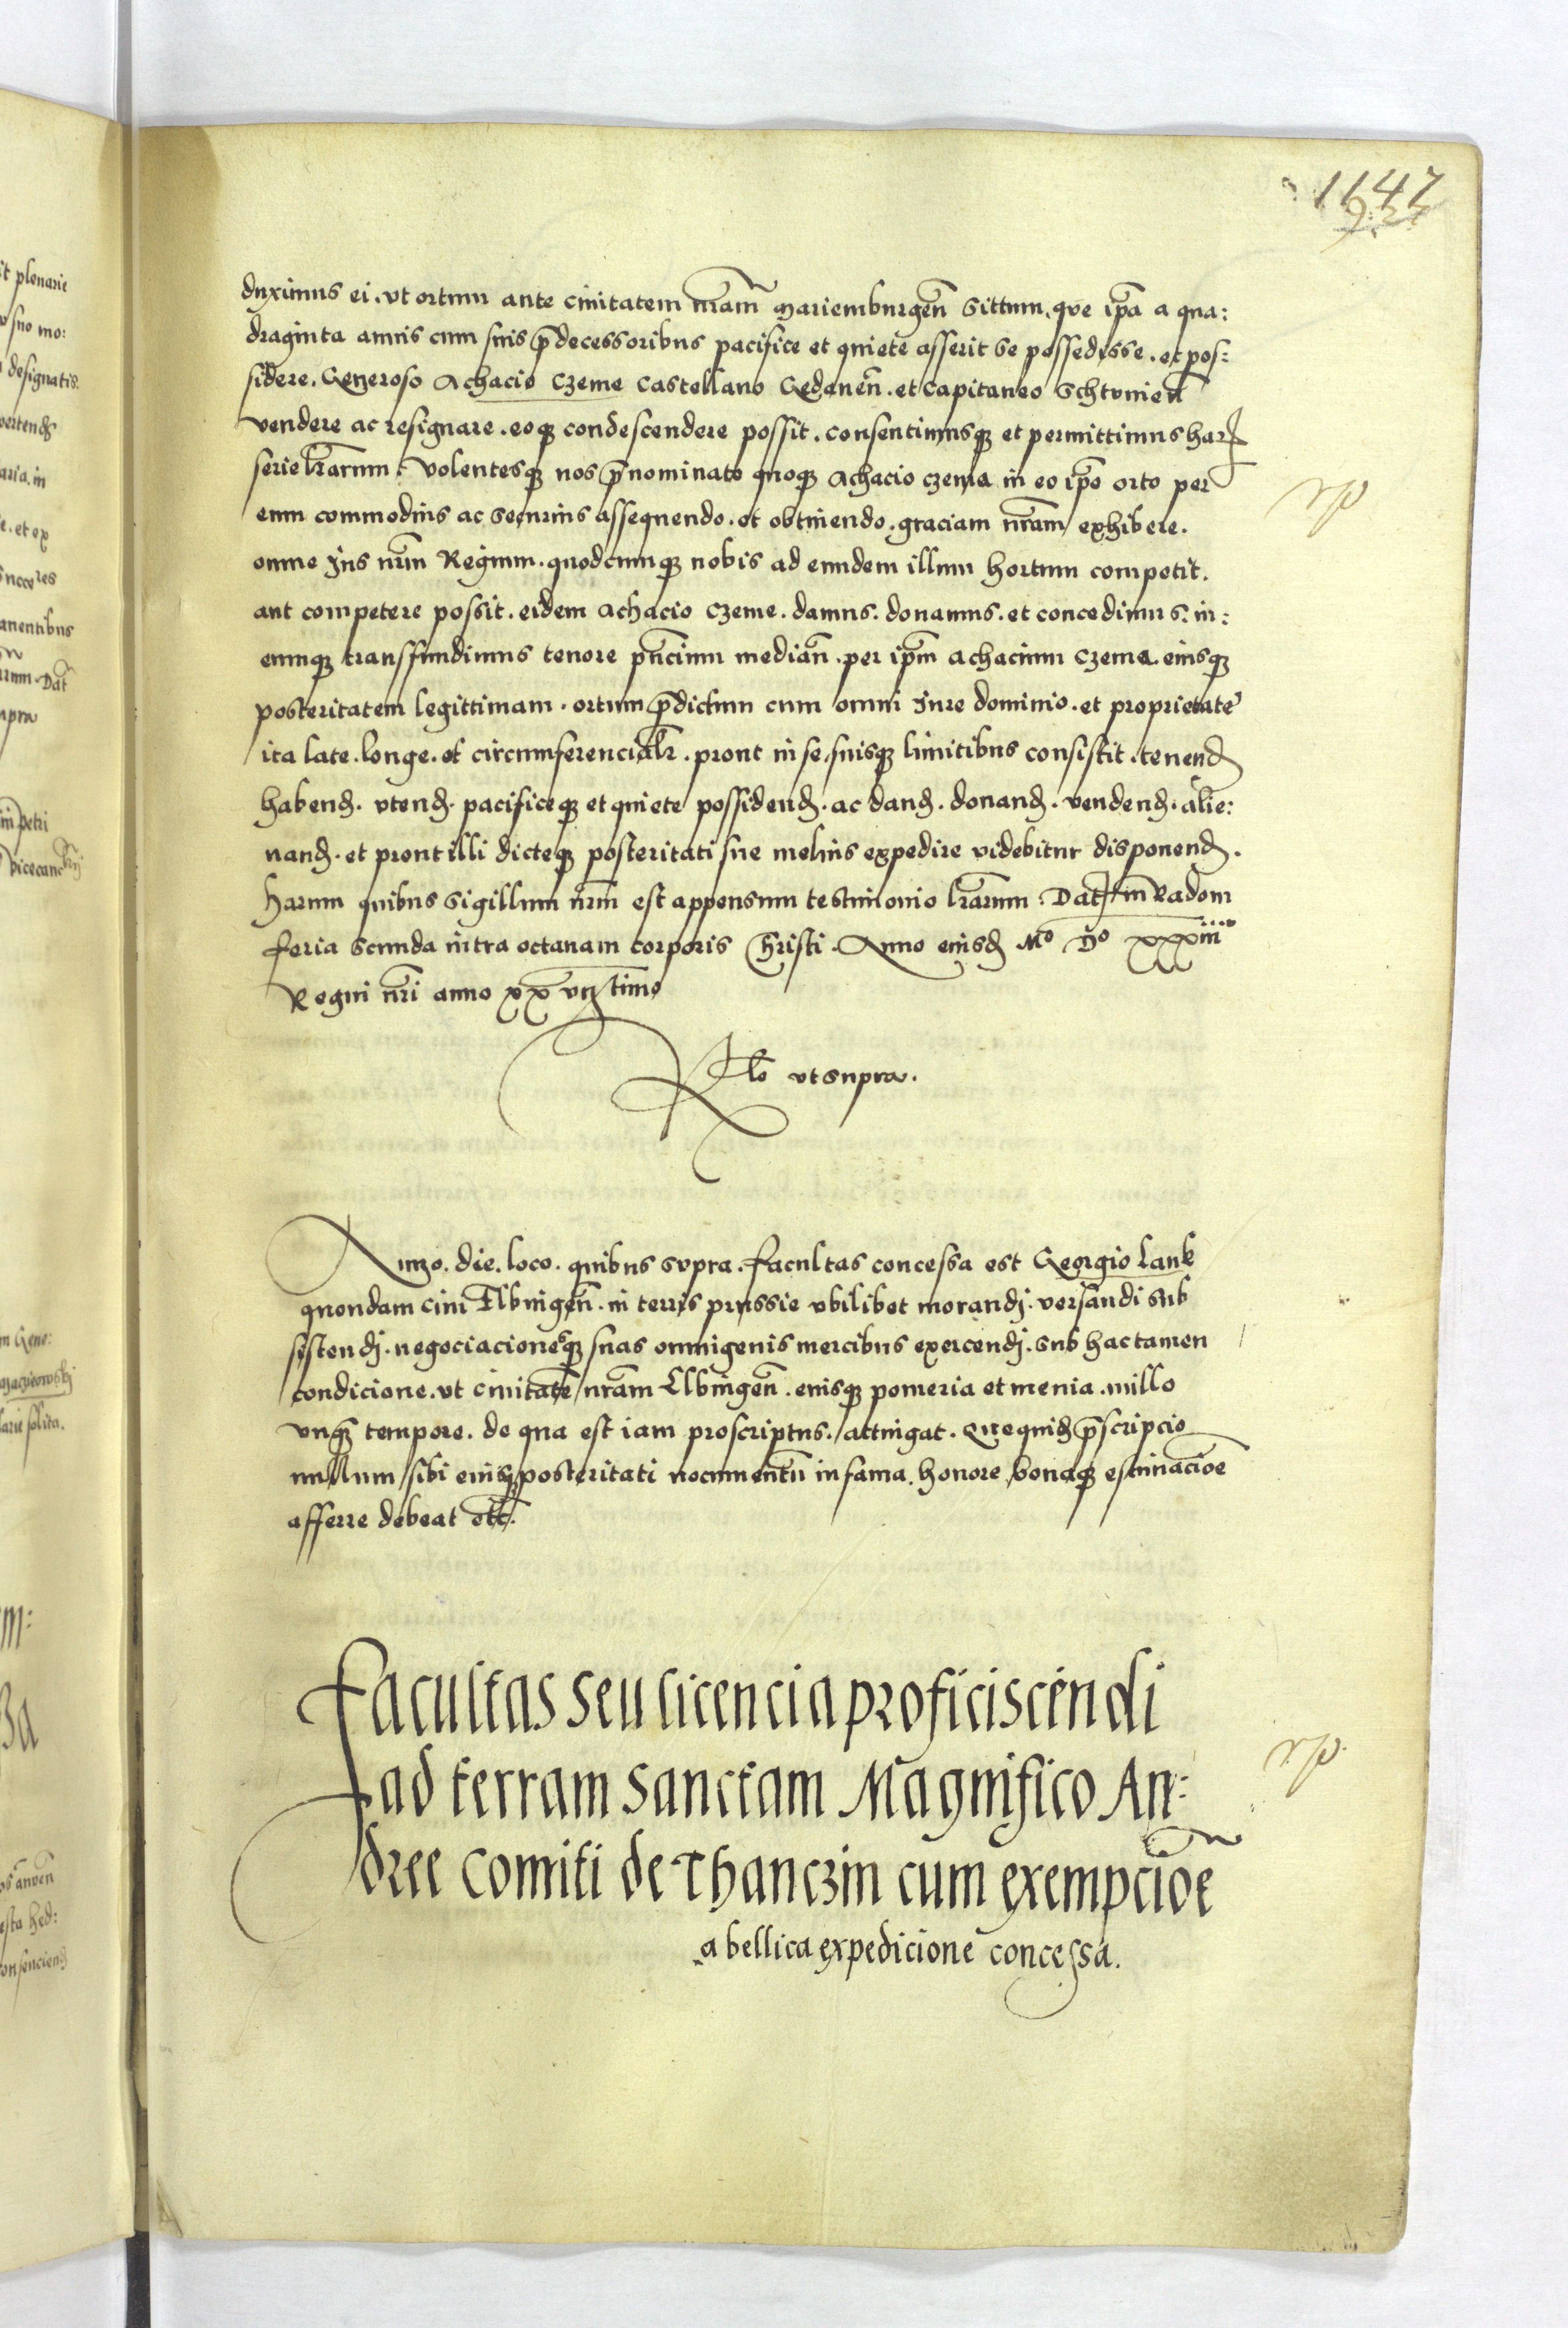 1147
duximus ei. vt ortum ante ciuitatem nram̄ Mariemburgeñ sittum. que ip̄a a qua:
draginta annis cum suis p̄decessoribus pacifice et quiete asserit se possedisse. et pos:
sidere. Generoso Achacio Czeme Castellano Gedaneñ. et Capitaneo Schtvmieñ
vendere ac resignare. eoqꝫ condescendere possit. consentimusqꝫ et permittimus harꝝ
serie lr̄arum. Volentesqꝫ nos p̄nominato quoqꝫ Achacio Czema in eo ip̄o orto per
eum commodius ac securius assequendo. et obtinendo. graciam nr̄am exhibere.
omne Jus nr̄m Regium. quodcumqꝫ nobis ad eundem illum hortum competit.
aut competere possit. eidem Achacio Czeme. damus. donamus. et concedimus. in:
eumqꝫ transfundimus tenore pn̄cium mediañ. per ip̄m Achacium Czema. eiusqꝫ
posteritatem legittimam. ortum p̄dictum cum omni Jure dominio. et proprietate
ita late. longe. et circumferencialr̄. prout in se. suisqꝫ limitibus consistit. tenend̄
habend̄. vtend̄. pacificeqꝫ et quiete possidend̄. ac dand̄. donand̄. vendend̄. alie:
nand̄. et prout illi dicteqꝫ posteritati sue melius expedire videbitur disponend̄.
harum quibus sigillum nr̄m est appensum testimonio lr̄arum. Datꝝ in Radom
feria scunda intra octauam corporis Christi. Anno eiusd̄ Mº Dº xxxiiiº
Regni nr̄i anno xx vi̅jtimo
Rlō vt supra.
Anno. die. loco. quibus svpra. facultas concessa est Georgio Lank
quondam ciui Elbingeñ. in terris prussie vbilibet morandj. versandi sub
sistendj. negociacionesqꝫ suas omnigenis mercibus exercendj. sub hac tamen
condicione. vt ciuitatē nr̄am Elbingeñ. eiusqꝫ pomeria et menia. nullo
vnqꝫ tempore. de qua est iam proscriptus. attingat. Quequid̄ p̄scripcio
nullum sibi eiusqꝫ posteritati nocumentū in fama. honore bonaqꝫ estimacioē
afferre debeat etc̄.
Facultas seu licencia proficiscendi
ad terram sanctam Magnifico An:
dree Comiti de Thanczin cum exempcioē
a bellica expedicione concessa.